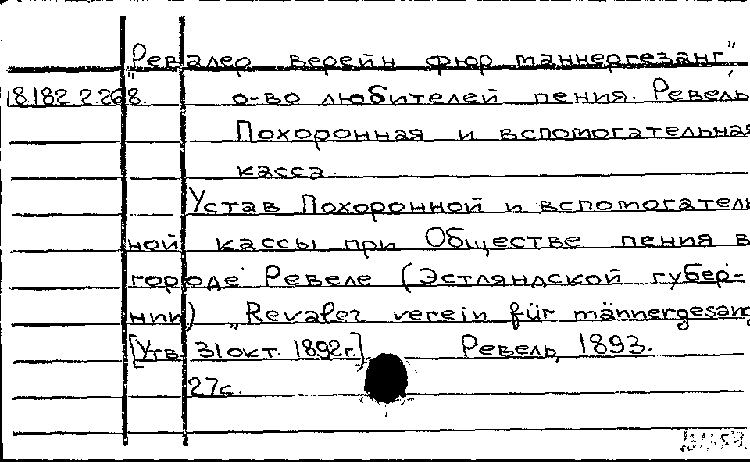 "Ревалер верейн фюр маннергезанг"
18.182.2.268. о-во любителей пения. Ревель
Похоронная и вспомогательная
касса
Устав Похоронной и вспомогатель
ной кассы при Обществе пения в
городе Ревеле (Эстляндской губер-
нии) "Revaler verein für männergesang
[Утв. 31 окт. 1892 г.] Ревель, 1893.
27с.